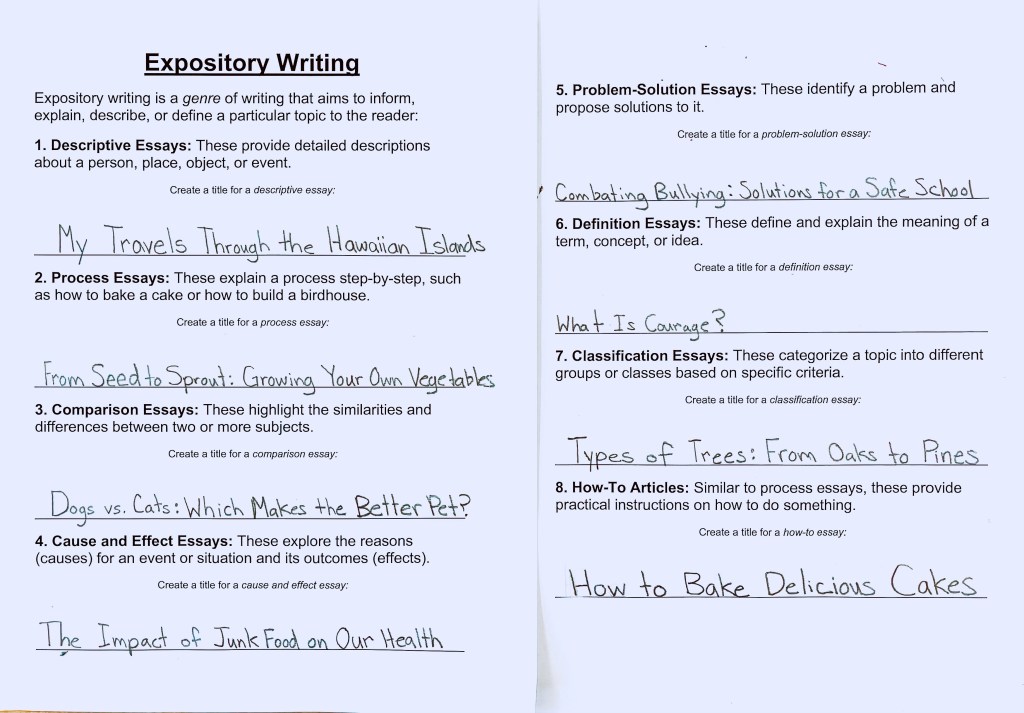 Expository Writing
Expository writing is a genre of writing that aims to inform,
explain, describe, or define a particular topic to the reader:
1. Descriptive Essays: These provide detailed descriptions
about a person, place, object, or event.
Create a title for a descriptive essay:
My Travels Through the Hawaiian Islands
2. Process Essays: These explain a process step-by-step, such
as how to bake a cake or how to build a birdhouse.
Create a title for a process essay:
From Seed to Sprout: Growing Your Own Vegetables
3. Comparison Essays: These highlight the similarities and
differences between two or more subjects.
Create a title for a comparison essay:
Dogs vs. Cats: Which Makes the Better Pet?
4. Cause and Effect Essays: These explore the reasons
(causes) for an event or situation and its outcomes (effects).
Create a title for a cause and effect essay:
The Impact of Junk Food on Our Health
5. Problem-Solution Essays: These identify a problem and
propose solutions to it.
Create a title for a problem-solution essay:
Combating Bullying: Solutions for a Safe School
6. Definition Essays: These define and explain the meaning of a
term, concept, or idea.
Create a title for a definition essay:
What Is Courage?
7. Classification Essays: These categorize a topic into different
groups or classes based on specific criteria.
Create a title for a classification essay:
Types of Trees: From Oaks to Pines
8. How-To Articles: Similar to process essays, these provide
practical instructions on how to do something.
Create a title for a how-to essay:
How to Bake Delicious Cakes